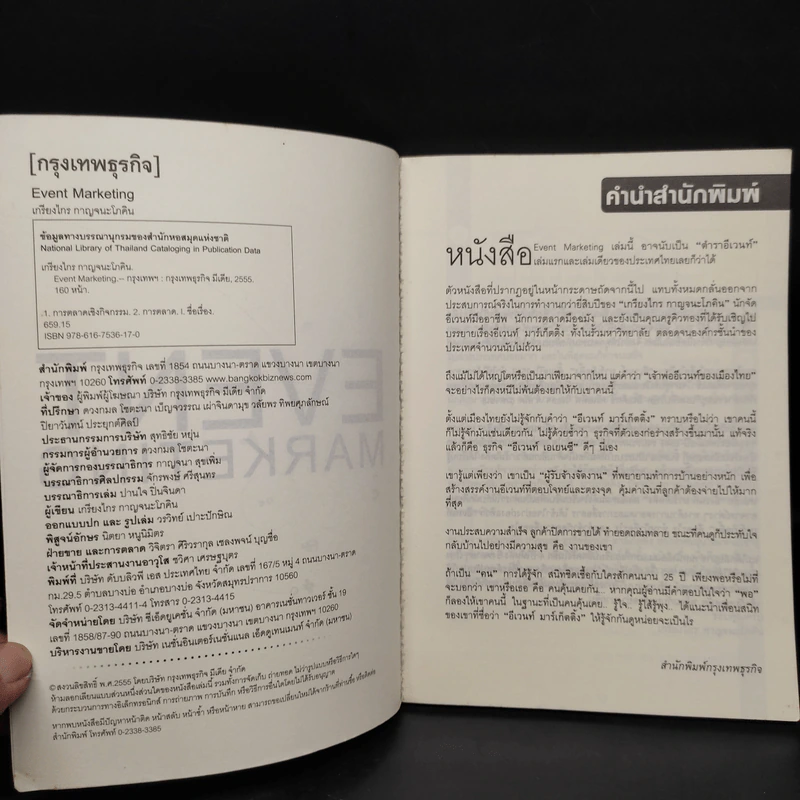 [กรุงเทพธุรกิจ]
Event Marketing
เกรียงไกร กาญจนะโภคิน
ข้อมูลทางบรรณานุกรมของสำนักหอสมุดแห่งชาติ
National Library of Thailand Cataloging in Publication Data
เกรียงไกร กาญจนะโภคิน.
Event Marketing.-- กรุงเทพฯ : กรุงเทพธุรกิจ มีเดีย, 2555.
160 หน้า.
1. การตลาดเชิงกิจกรรม. 2. การตลาด. I. ชื่อเรื่อง.
659.15
ISBN 978-616-7536-17-0
สำนักพิมพ์ กรุงเทพธุรกิจ เลขที่ 1854 ถนนบางนา-ตราด แขวงบางนา เขตบางนา
กรุงเทพฯ 10260 โทรศัพท์ 0-2338-3385 www.bangkokbiznews.com
เจ้าของ ผู้พิมพ์ผู้โฆษณา บริษัท กรุงเทพธุรกิจ มีเดีย จำกัด
ที่ปรึกษา ดวงกมล โชตะนา เบ็ญจวรรณ เผ่าจินดามุข วลัยพร ทิพยศุภลักษณ์
ปิยาวันทน์ ประยุกต์ศิลป์
ประธานกรรมการบริษัท สุทธิชัย หยุ่น
กรรมการผู้อำนวยการ ดวงกมล โชตะนา
ผู้จัดการกองบรรณาธิการ กาญจนา สุขเพิ่ม
บรรณาธิการศิลปกรรม จักรพงษ์ ศรีสุนทร
บรรณาธิการเล่ม ปานใจ ปิ่นจินดา
ผู้เขียน เกรียงไกร กาญจนะโภคิน
ออกแบบปก และ รูปเล่ม วรวิทย์ เปาะปักษิณ
พิสูจน์อักษร นิตยา หนูนิมิตร
ฝ่ายขาย และการตลาด วิจิตรา ศิริวรากุล เชลงพจน์ บุญซื่อ
เจ้าหน้าที่ประสานงานอาวุโส ชวิศา เศรษฐบุตร
พิมพ์ที่ บริษัท ดับบลิวพี เอส ประเทศไทย จำกัด เลขที่ 167/5 หมู่ 4 ถนนบางนา-ตราด
กม.29.5 ตำบลบางบ่อ อำเภอบางบ่อ จังหวัดสมุทรปราการ 10560
โทรศัพท์ 0-2313-4411-4 โทรสาร 0-2313-4415
จัดจำหน่ายโดย บริษัท ซีเอ็ดยูเคชั่น จำกัด (มหาชน) อาคารเนชั่นทาวเวอร์ ชั้น 19
เลขที่ 1858/87-90 ถนนบางนา-ตราด แขวงบางนา เขตบางนา กรุงเทพฯ 10260
บริหารงานขายโดย บริษัท เนชั่นอินเตอร์เนชั่นแนล เอ็ดดูเทนเมนท์ จำกัด (มหาชน)
© สงวนลิขสิทธิ์ พ.ศ.2555 โดยบริษัท กรุงเทพธุรกิจ มีเดีย จำกัด
ห้ามลอกเลียนแบบส่วนหนึ่งส่วนใดของหนังสือเล่มนี้ รวมทั้งการจัดเก็บ ถ่ายทอด ไม่ว่ารูปแบบหรือวิธีการใดๆ
ด้วยกระบวนการทางอิเล็กทรอนิกส์ การถ่ายภาพ การบันทึก หรือวิธีการอื่นใดโดยไม่ได้รับอนุญาต
หากพบหนังสือมีปัญหาหน้าติด หน้าสลับ หน้าซ้ำ หรือหน้าหาย สามารถขอเปลี่ยนใหม่ได้จากร้านที่ท่านซื้อ หรือติดต่อ
สำนักพิมพ์ โทรศัพท์ 0-2338-3385
คำนำสำนักพิมพ์
หนังสือ Event Marketing เล่มนี้ อาจนับเป็น “ตำราอีเวนท์”
เล่มแรกและเล่มเดียวของประเทศไทยเลยก็ว่าได้
ตัวหนังสือที่ปรากฏอยู่ในหน้ากระดาษถัดจากนี้ไป แทบทั้งหมดกลั่นออกจาก
ประสบการณ์จริงในการทำงานกว่ายี่สิบปีของ “เกรียงไกร กาญจนะโภคิน” นักจัด
อีเวนท์มืออาชีพ นักการตลาดมือฉมัง และยังเป็นคุณครูคิวทองที่ได้รับเชิญไป
บรรยายเรื่องอีเวนท์ มาร์เก็ตติ้ง ทั้งในรั้วมหาวิทยาลัย ตลอดจนองค์กรชั้นนำของ
ประเทศจำนวนนับไม่ถ้วน
ถึงแม้ไม่ได้ใหญ่โตหรือเป็นมาเฟียมาจากไหน แต่คำว่า “เจ้าพ่ออีเวนท์ของเมืองไทย”
จะอย่างไรก็คงหนีไม่พ้นต้องยกให้กับเขาคนนี้
ตั้งแต่เมืองไทยยังไม่รู้จักกับคำว่า “อีเวนท์ มาร์เก็ตติ้ง” ทราบหรือไม่ว่า เขาคนนี้
ก็ไม่รู้จักมันเช่นเดียวกัน ไม่รู้ด้วยซ้ำว่า ธุรกิจที่ตัวเองก่อร่างสร้างขึ้นมานั้น แท้จริง
แล้วก็คือ ธุรกิจ “อีเวนท์ เอเยนซี่” ดีๆ นี่เอง
เขารู้แต่เพียงว่า เขาเป็น “ผู้รับจ้างจัดงาน” ที่พยายามทำการบ้านอย่างหนัก เพื่อ
สร้างสรรค์งานอีเวนท์ที่ตอบโจทย์และตรงจุด คุ้มค่าเงินที่ลูกค้าต้องจ่ายไปให้มาก
ที่สุด
งานประสบความสำเร็จ ลูกค้าปิดการขายได้ ทำยอดถล่มทลาย ขณะที่คนดูก็ประทับใจ
กลับบ้านไปอย่างมีความสุข คือ งานของเขา
ถ้าเป็น “คน” การได้รู้จัก สนิทชิดเชื้อกับใครสักคนนาน 25 ปี เพียงพอหรือไม่ที่
จะบอกว่า เขาหรือเธอ คือ คนคุ้นเคยกัน.. หากคุณผู้อ่านมีคำตอบในใจว่า “พอ”
ก็ลองให้เขาคนนี้ ในฐานะที่เป็นคนคุ้นเคย.. รู้ใจ.. รู้ไส้รู้พุง.. ได้แนะนำเพื่อนสนิท
ของเขาที่ชื่อว่า “อีเวนท์ มาร์เก็ตติ้ง” ให้รู้จักกันดูหน่อยจะเป็นไร
สำนักพิมพ์กรุงเทพธุรกิจ